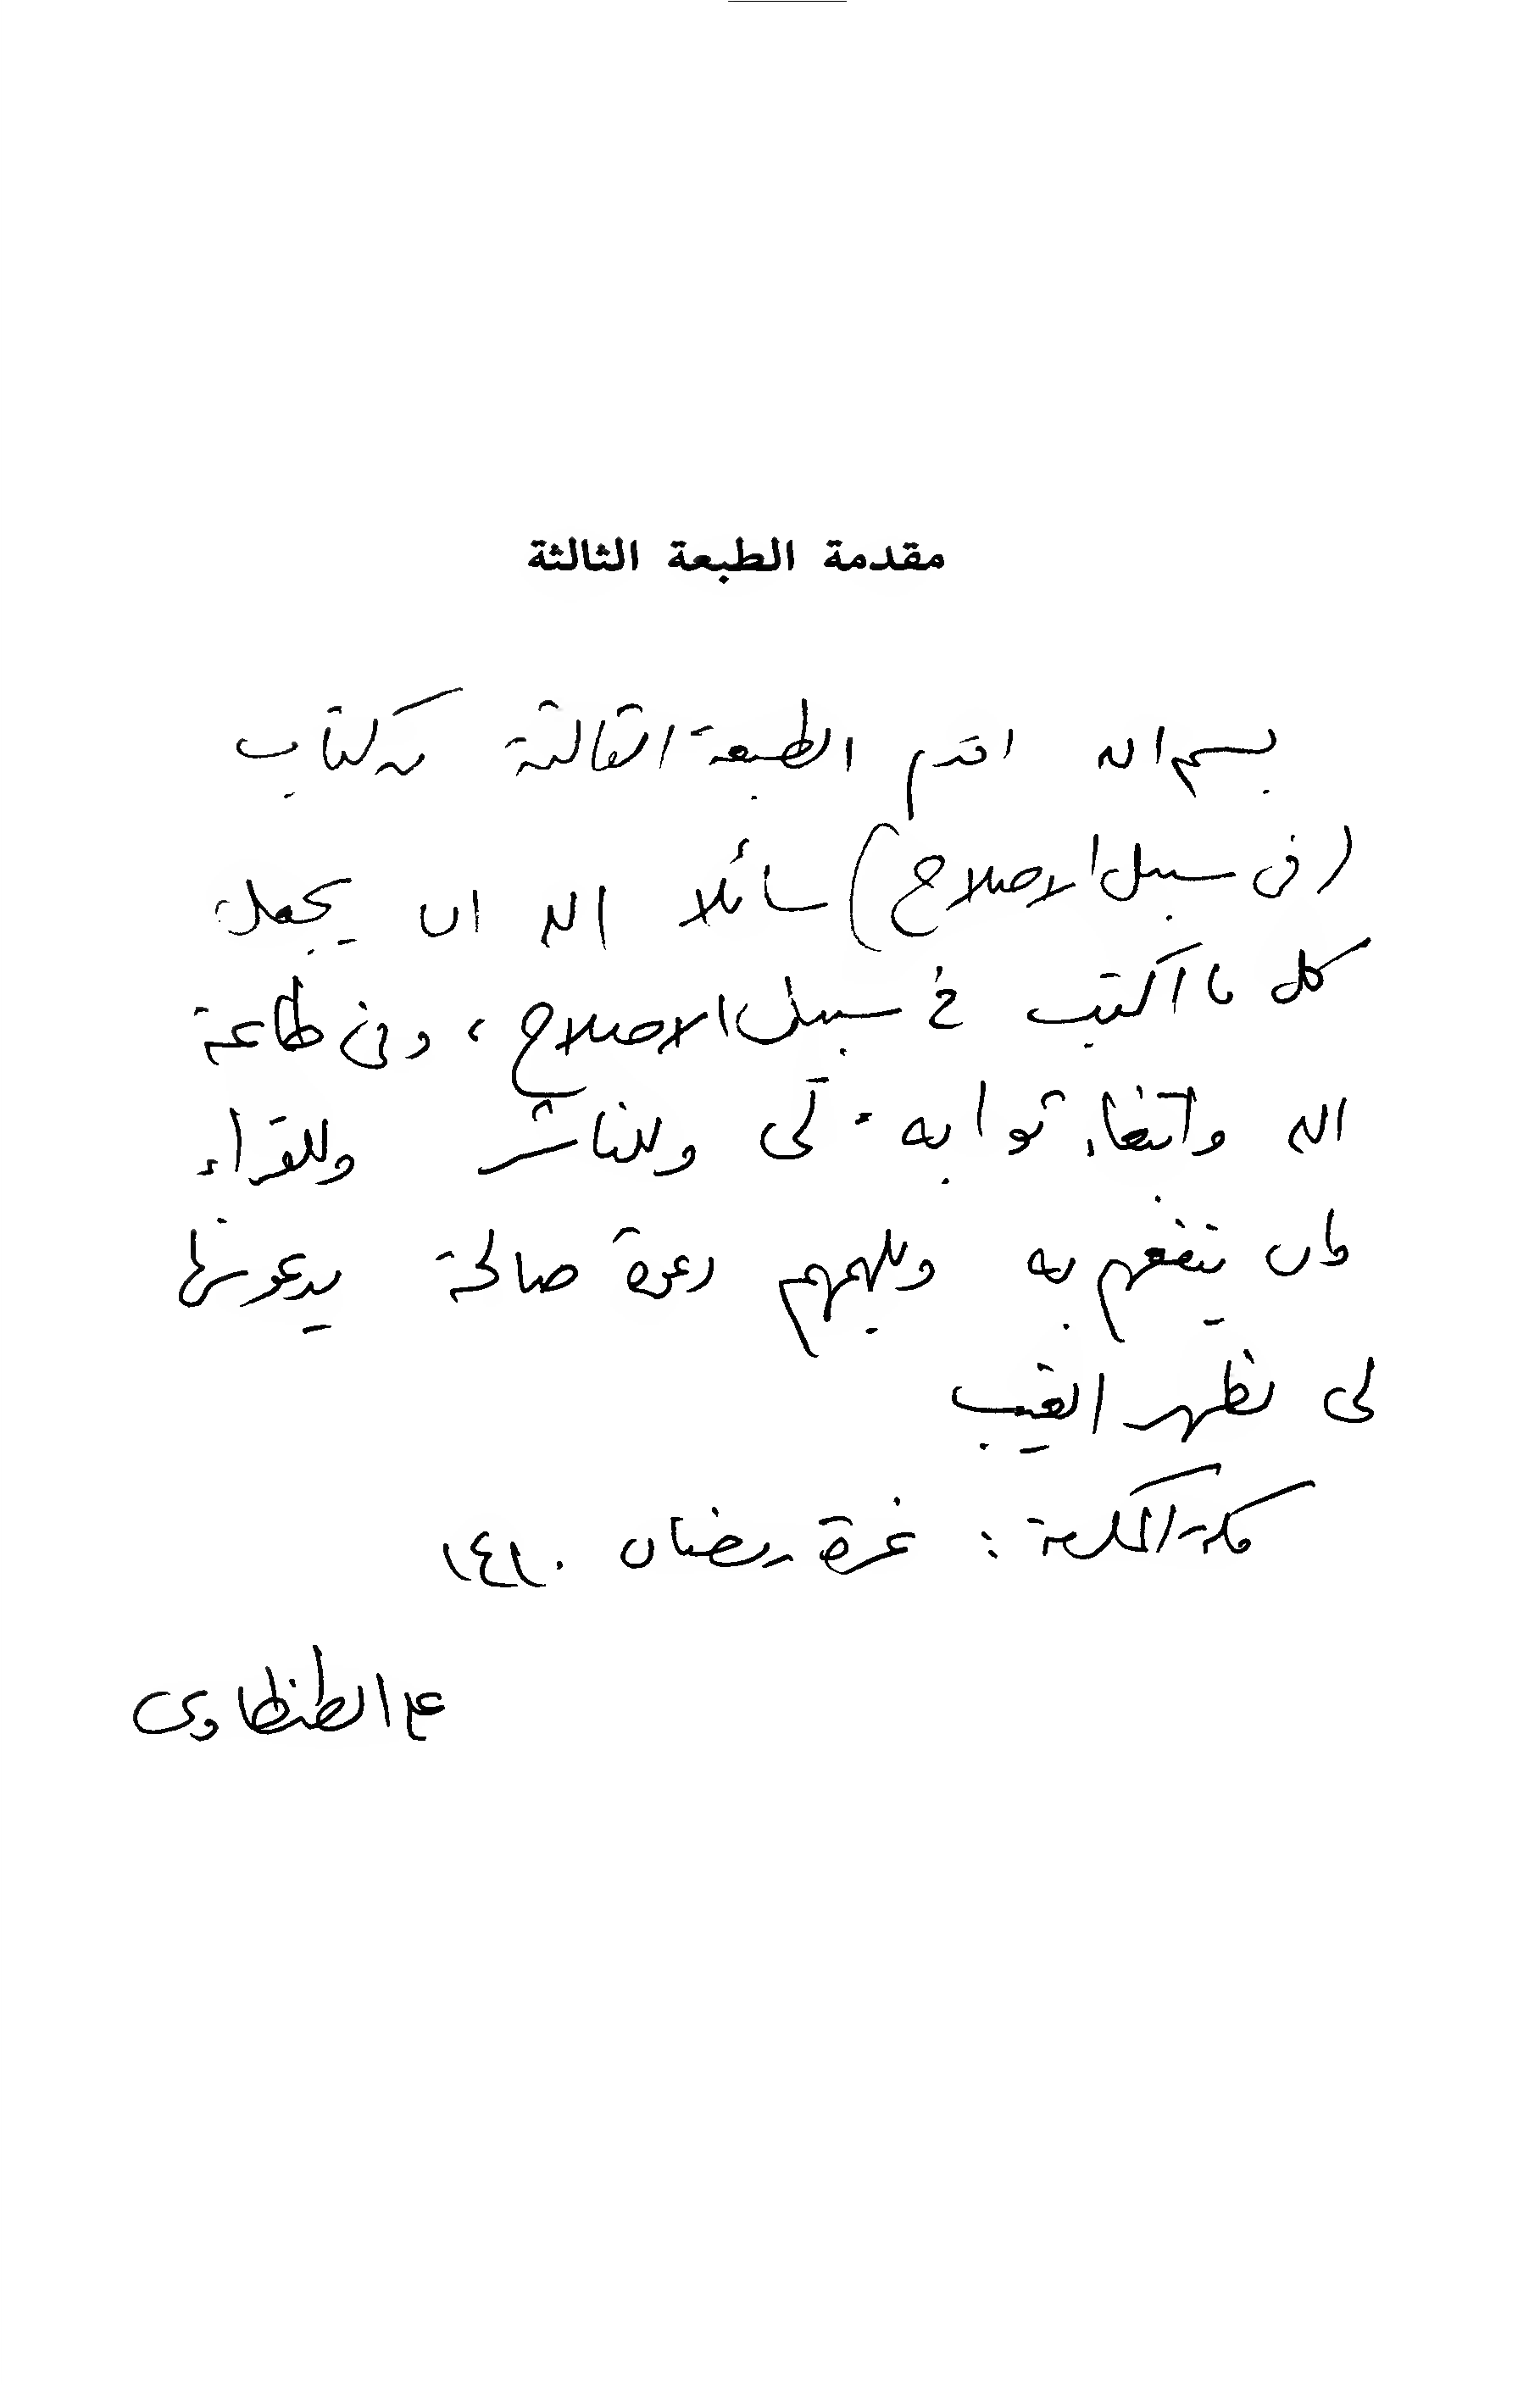 مقدمة الطبعة الثالثة
بسم الله اقدم الطبعة الثالثة من كتاب
(في سبيل الاصلاح) سائلا الله ان يجعل
كل ما اكتب في سبيل الاصلاح، وفي طاعة
الله وابتغاء ثوابه. لي وللناشر وللقراء
وان ينفعهم به ويلهمهم دعوة صالحة يدعونها
لي بظهر الغيب
مكة المكرمة : غرة رمضان ١٤١٠
علي الطنطاوي